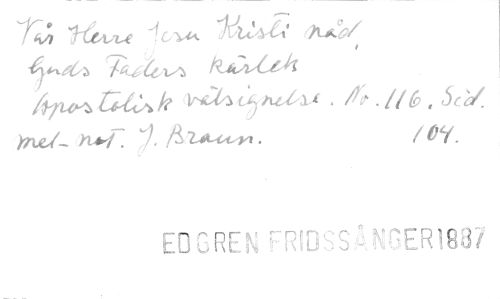 Vår Herre Jesu Kristi nåd,
Guds Faders kärlek
Apostolisk välsignelse. No. 116. Sid.
mel-not. J. Braun. 104.
EDGREN FRIDSSÅNGER 1887